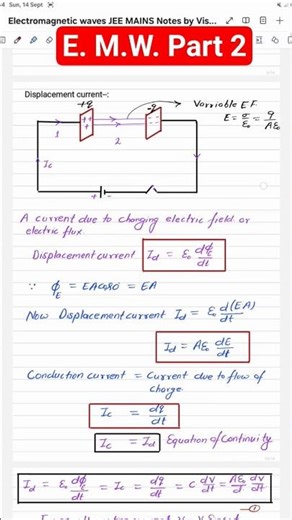 -4 Sun, 14 Sept
Electromagnetic waves JEE MAINS Notes by Vis...
E. M.W. Part 2
Displacement current-:
+q
-q
Varriable EF
E = σ/ε₀ = q/Aε₀
1
2
Ic
+ -
A current due to changing electric field or
electric flux.
Displacement current Id = ε₀ dϕE/dt
∵ ϕE = EA cos0 = EA
Now Displacement current Id = ε₀ d(EA)/dt
Id = Aε₀ dE/dt
Conduction current = Current due to flow of
charge
Ic = dq/dt
Ic = Id Equation of Continuity
Id = ε₀ dϕE/dt = Ic = dq/dt = C dV/dt = Aε₀/d dV/dt
①